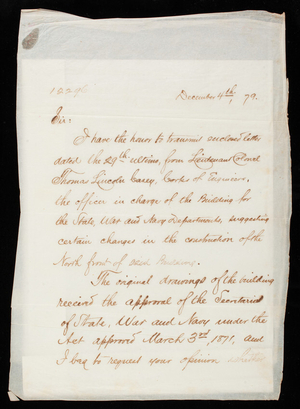 December 4th, 79.
Sir:
I have the honor to transmit enclosed letter
dated the 29th ultimo, from Lieutenant Colonel
Thomas Lincoln Casey, Corps of Engineers,
the officer in charge of the Building for
the State, War and Navy Departments, suggesting
certain changes in the construction of the
North front of said Building.
The original drawings of the building
received the approval of the Secretaries
of State, War and Navy under the
Act approved March 3rd, 1871, and
I beg to request your opinion whether